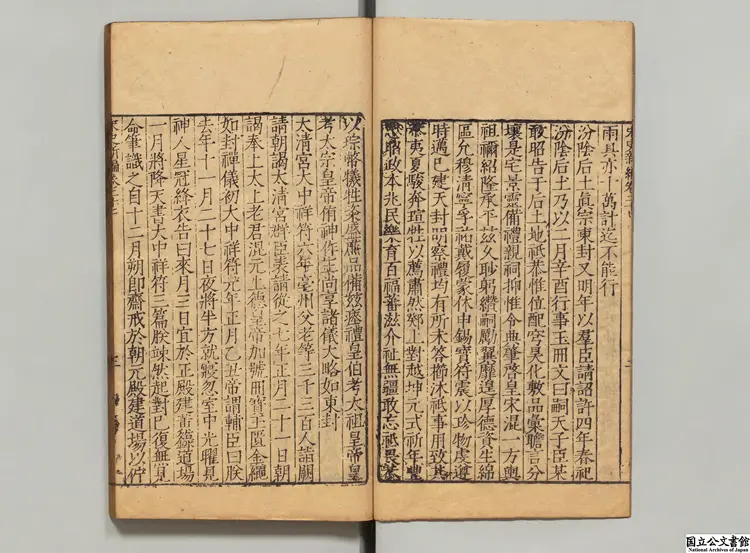 雨具亦十萬計迄不能行
汾陰后土眞宗東封又明年以羣臣請詔許四年春祀
汾陰后土乃以二月辛酉行事玉冊文曰嗣天子臣某
敢昭告于后土地祇恭惟位配穹昊化敷品彙瞻言分
壤是宅景靈備禮親祠抑惟令典肇啓皇宋混一方輿
祖禰紹隆承平茲久眇躬纘嗣勵翼靡遑厚德資生綿
區允穆清寧孚祐戴履蒙休申錫寶符震以珍物虔遵
時邁已建天封明察禮均有所未答櫛沐祇事用致其
恭夷夏駿奔瑄牲以薦肅然郊上對越坤元式祈年豐
懋昭政本兆民樂育百福蕃滋介祉無疆敢忘祇畏恭
以琮幣犧牲粢盛庶品備茲瘞禮皇伯考太祖皇帝皇
考太宗皇帝侑神作主尚享諸儀大略如東封
太清宮大中祥符六年亳州父老等三千三百人詣闕
請朝謁太清宮羣臣表請從之七年正月二十一日朝
謁奉上太上老君混元上德皇帝加號冊寶玉匱金繩
如封禪儀初大中祥符元年正月乙丑帝謂輔臣曰朕
去年十一月二十七日夜將半方就寢忽室中光曜見
神人星冠絳衣告曰來月三日宜於正殿建黃籙道場
一月將降天書大中祥符三篇朕竦然起對已復無見
命筆識之自十二月朔即齋戒於朝元殿建道場以佇
国立公文書館
National Archives of Japan